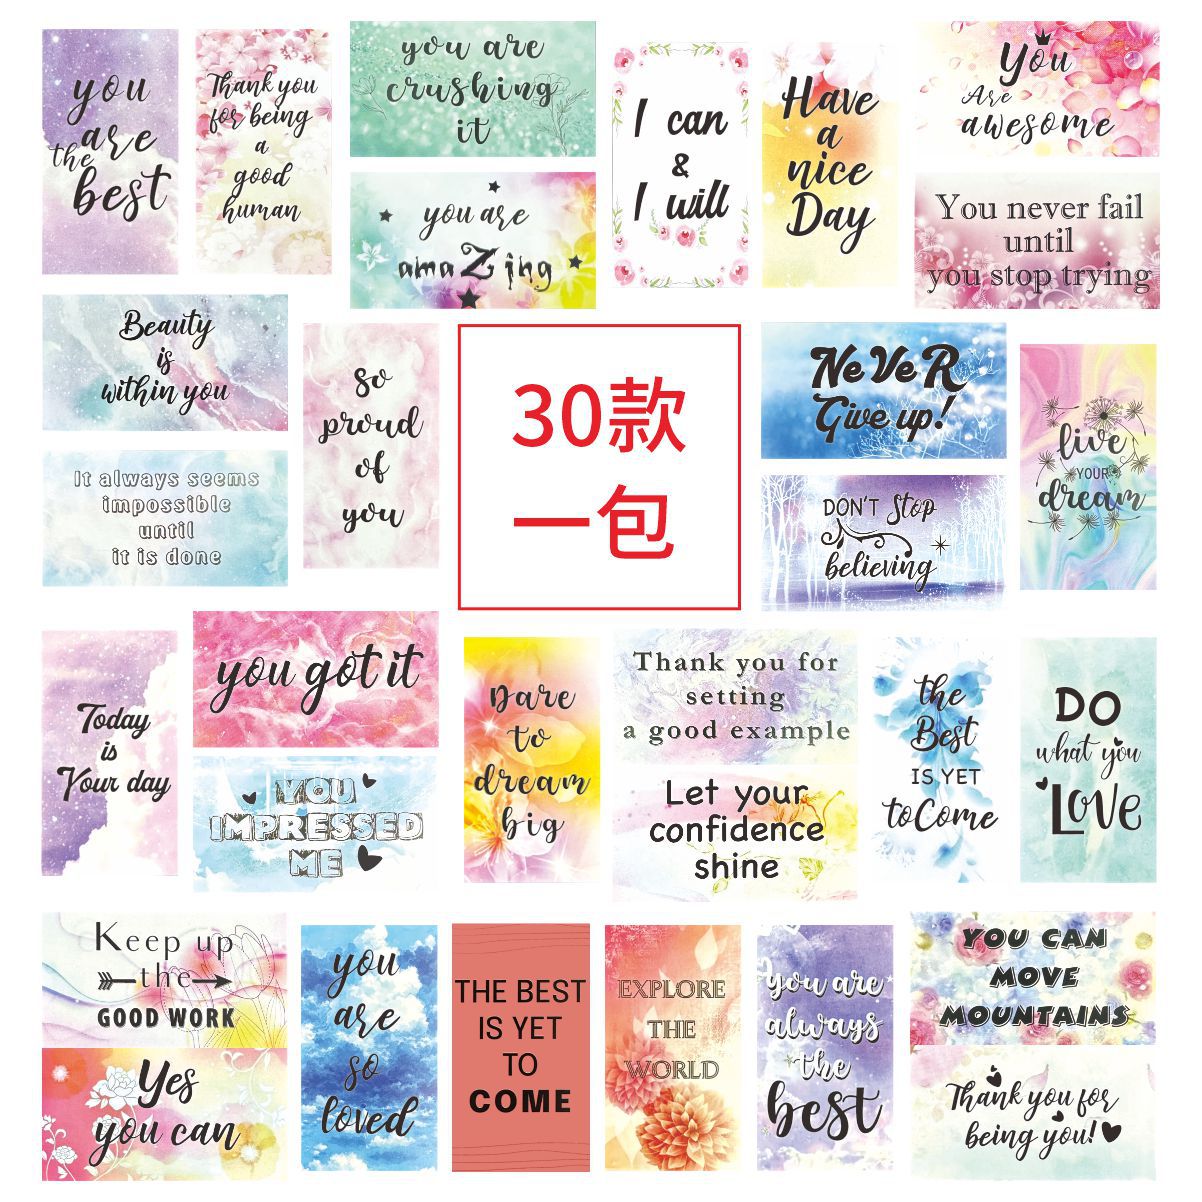 you
are
the
best
Thank you
for being
a
good
human
you are
crushing
it
you are
amaZing
I can
&
I will
Have
a
nice
Day
You
Are
awesome
You never fail
until
you stop trying
Beauty
is
within you
It always seems
impossible
until
it is done
So
proud
of
you
30款
一包
NeVeR
Give up!
DON'T Stop
believing
live
YOUR
dream
Today
is
Your day
you got it
YOU
IMPRESSED
ME
Dare
to
dream
big
Thank you for
setting
a good example
Let your
confidence
shine
the
Best
IS YET
to Come
DO
what you
LOVE
Keep up
the
GOOD WORK
Yes
you can
you
are
so
loved
THE BEST
IS YET
TO
COME
EXPLORE
THE
WORLD
you are
always
the
best
YOU CAN
MOVE
MOUNTAINS
Thank you for
being you!